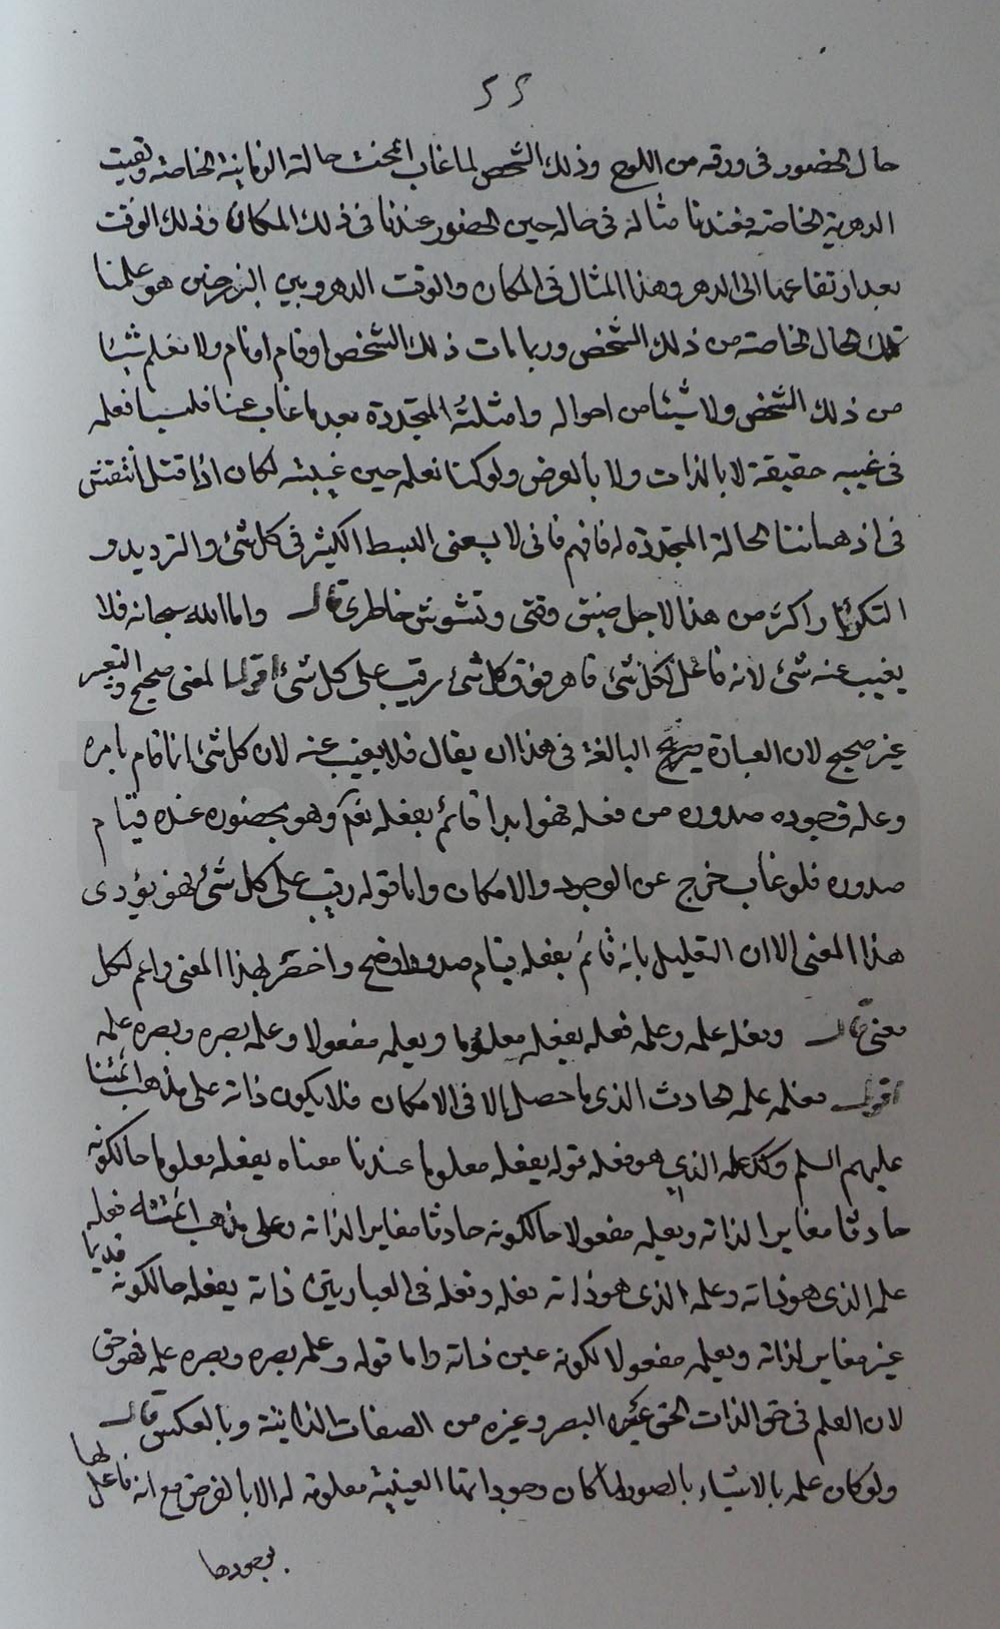 ٢٢
حال الحضور فى ورقه من اللوح وذلك الشخص لما غاب انمحت حالته الزمانية الخاصه وبقيت
الدهرية الخاصه فعندنا مثاله فى حاله حين الحضور عندنا فى ذلك المكان وذلك الوقت
بعد ارتفاعهما الى الدهر وهذا المثال فى المكان والوقت الدهرويين البرزخيين هو علمنا
بتلك الحال الخاصته من ذلك الشخص وربما مات ذلك الشخص او قام او نام ولا نعلم شيئا
من ذلك الشخص ولا شيئا من احواله وامثلته المتجددة بعد ما غاب عنا فلسنا نعلمه
فى غيبه حقيقة لا بالذات ولا بالعرض ولو كنا نعلمه حين غيبته لكان اذا قتل انتقش
فى اذهاننا الحالة المتجددة له فافهم فانى لا يسعنى البسط الكثير فى كل شئ والترديد و
التكرار اكثر من هذا لاجل ضيق وقتى وتشوش خاطرى قال واما الله سبحانه فلا
يغيب عنه شئ لانه فاعل لكل شئ قاهر فوق كل شئ رقيب على كل شئ اقول المعنى صحيح والتعبير
غير صحيح لان العبارة البالغة فى هذا ان يقال فلا يغيب عنه لان كل شئ انما قام بامره
وعله وجوده صدوره من فعله فهو ابدا قائم بفعله وهو بحضوره عنده قيام
صدور فلو غاب خرج عن الوجود والامكان واما قوله رقيب على كل شئ فهو يؤدى
هذا المعنى الا ان التعليل بانه قائم بفعله قيام صدور اوضح واخصر لهذا المعنى واعم لكل
معنى قال وفعله علمه وعلمه فعله بفعله معلوما وبعلمه مفعولا وعلمه بصره وبصره علمه
اقول فعلمه علمه الحادث الذى ما حصل الا فى الامكان فلا يكون ذاته على مذهب ائمتنا
عليهم السلم وكك علمه الذى هو فعله قوله بفعله معلوما عندنا معناه بفعله معلوما حالكونه
حادثا مغايرا لذاته وبعلمه مفعولا حالكونه حادثا مغايرا لذاته وعلى مذهب ائمته فعله
علمه الذى هو ذاته وعلمه الذى هو ذاته فعله وفعله فى العبارتين ذاته بفعله حالكونه قديما
غير مغاير لذاته وبعلمه مفعولا لكونه عين ذاته واما قوله وعلمه بصره وبصره علمه فهو حق
لان العلم فى حق الذات الحق عين البصر وغيره من الصفات الذاتية وبالعكس قال
ولو كان علمه بالاشياء بالصور لما كان وجوداتها العينية معلومة له الا بالعرض مع انه فاعل لها
بوجودها